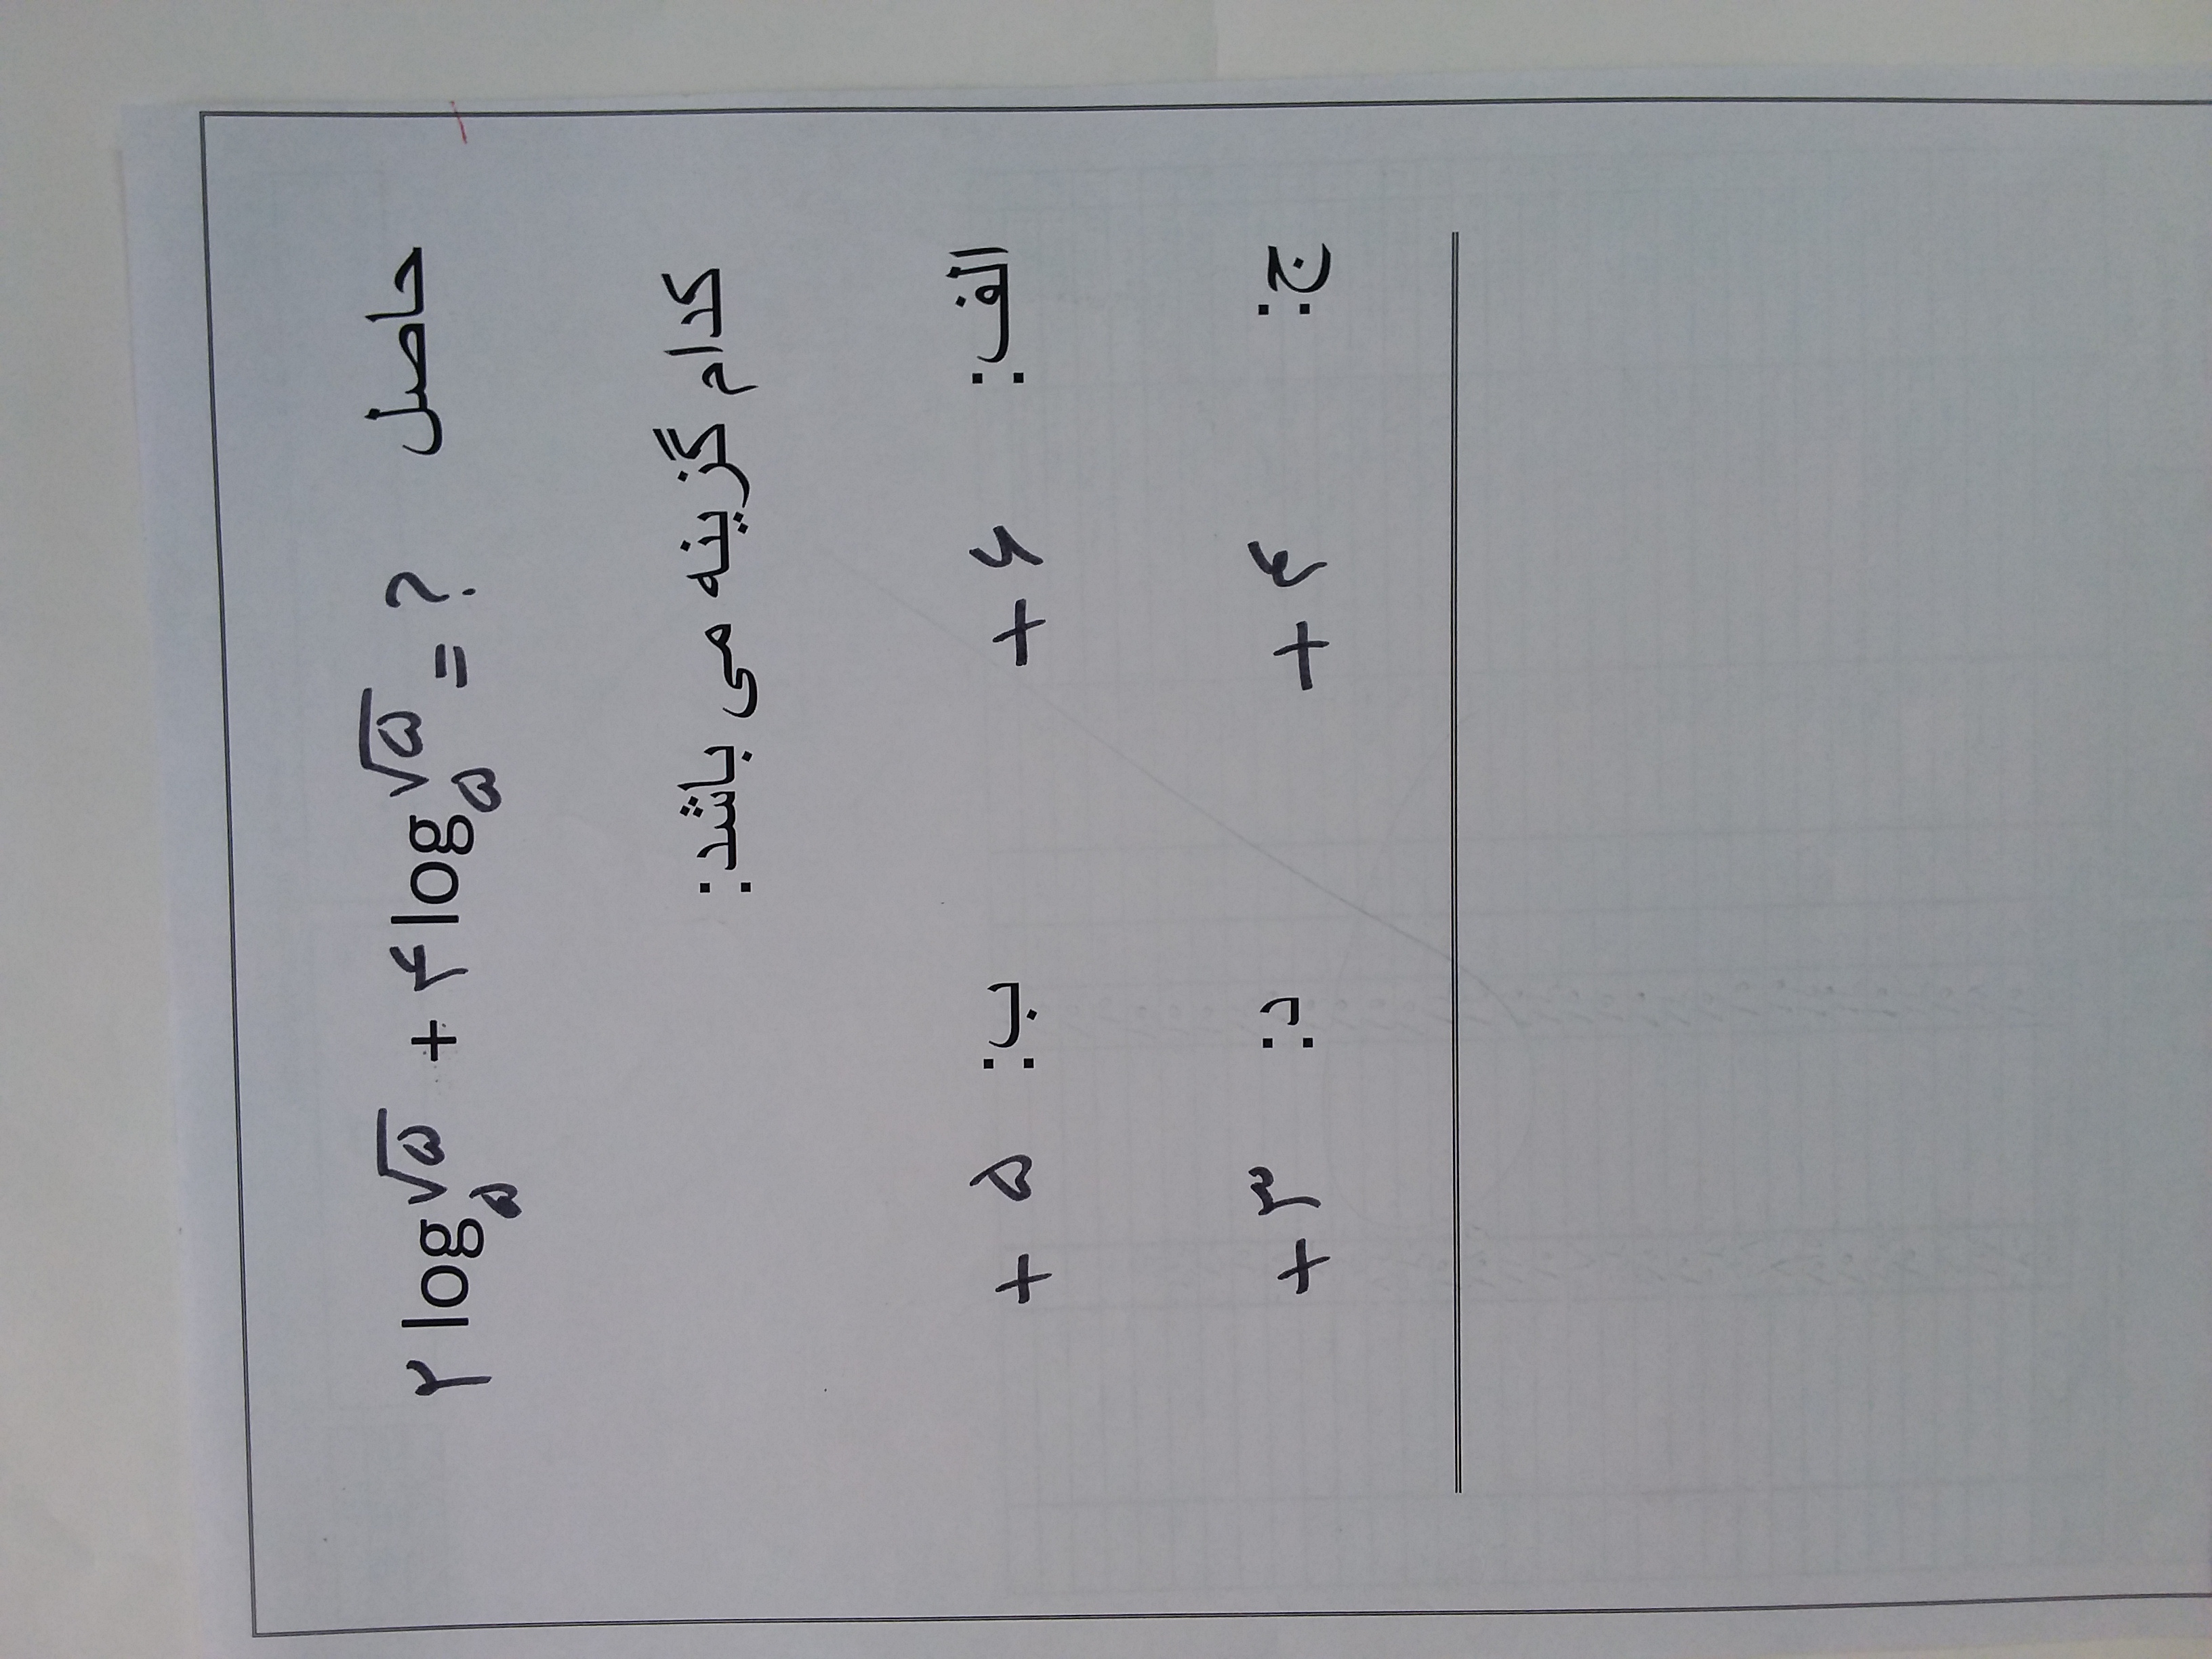 حاصل ۲ log₅√۵ + ۴ log₅√۵ = ?
کدام گزینه می باشد:
الف: +۶ ب: +۵
ج: +۴ د: +۳